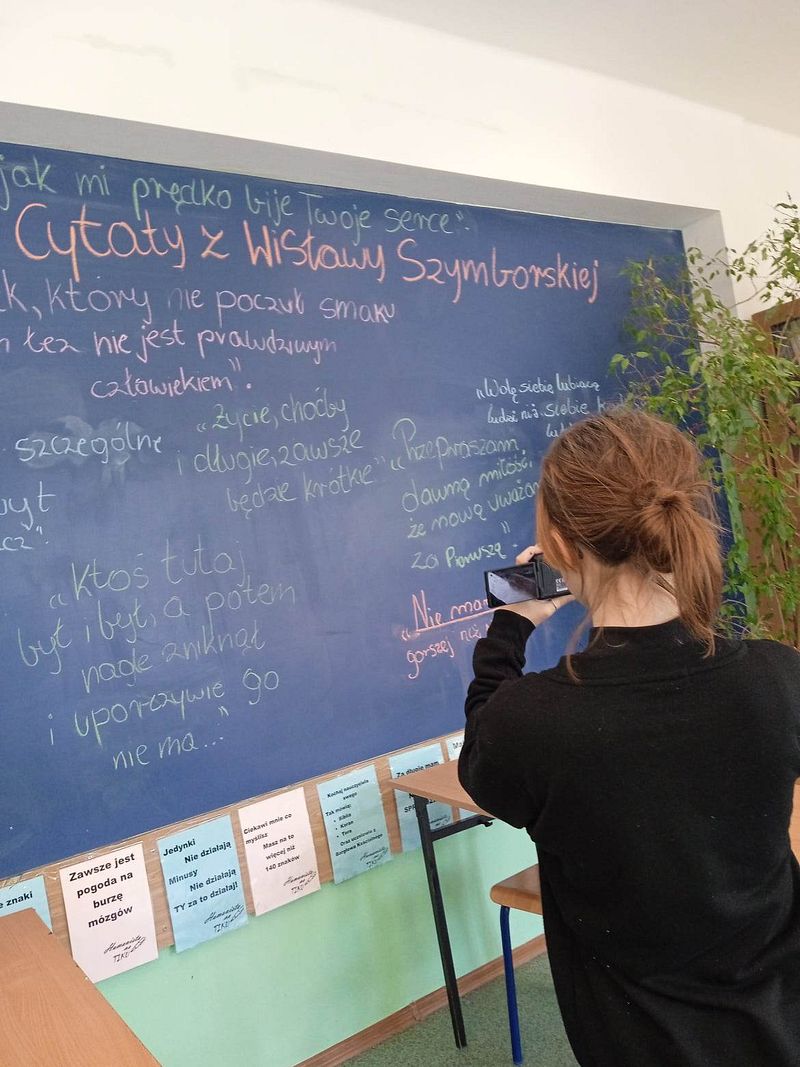 jak mi prędko bije Twoje serce".
Cytaty z Wisławy Szymborskiej
który nie poczuł smaku
też nie jest prawdziwym
człowiekiem".
szczególne
„Życie, choćby
i długie, zawsze
będzie krótkie"
„Wolę siebie lubiącą
ludzi niż siebie
„Przepraszam
dawną miłość,
że nową uważam
za Pierwszą"
„Ktoś tutaj
był i był, a potem
nagle zniknął
i uporczywie go
nie ma..."
„Nie ma
gorszej niż
znaki
Zawsze jest
pogoda na
burzę
mózgów
Humanista
na
TIKU
Jedynki
Nie działają
Minusy
Nie działają
TY za to działaj!
Humanista
na
TIKU
Ciekawi mnie co
myślisz
Masz na to
więcej niż
140 znaków
Humanista
na
TIKU
Kochaj nauczyciela
swego
Tak mówią:
• Biblia
• Koran
• Tora
Oraz uczniowie z
Za długie mam